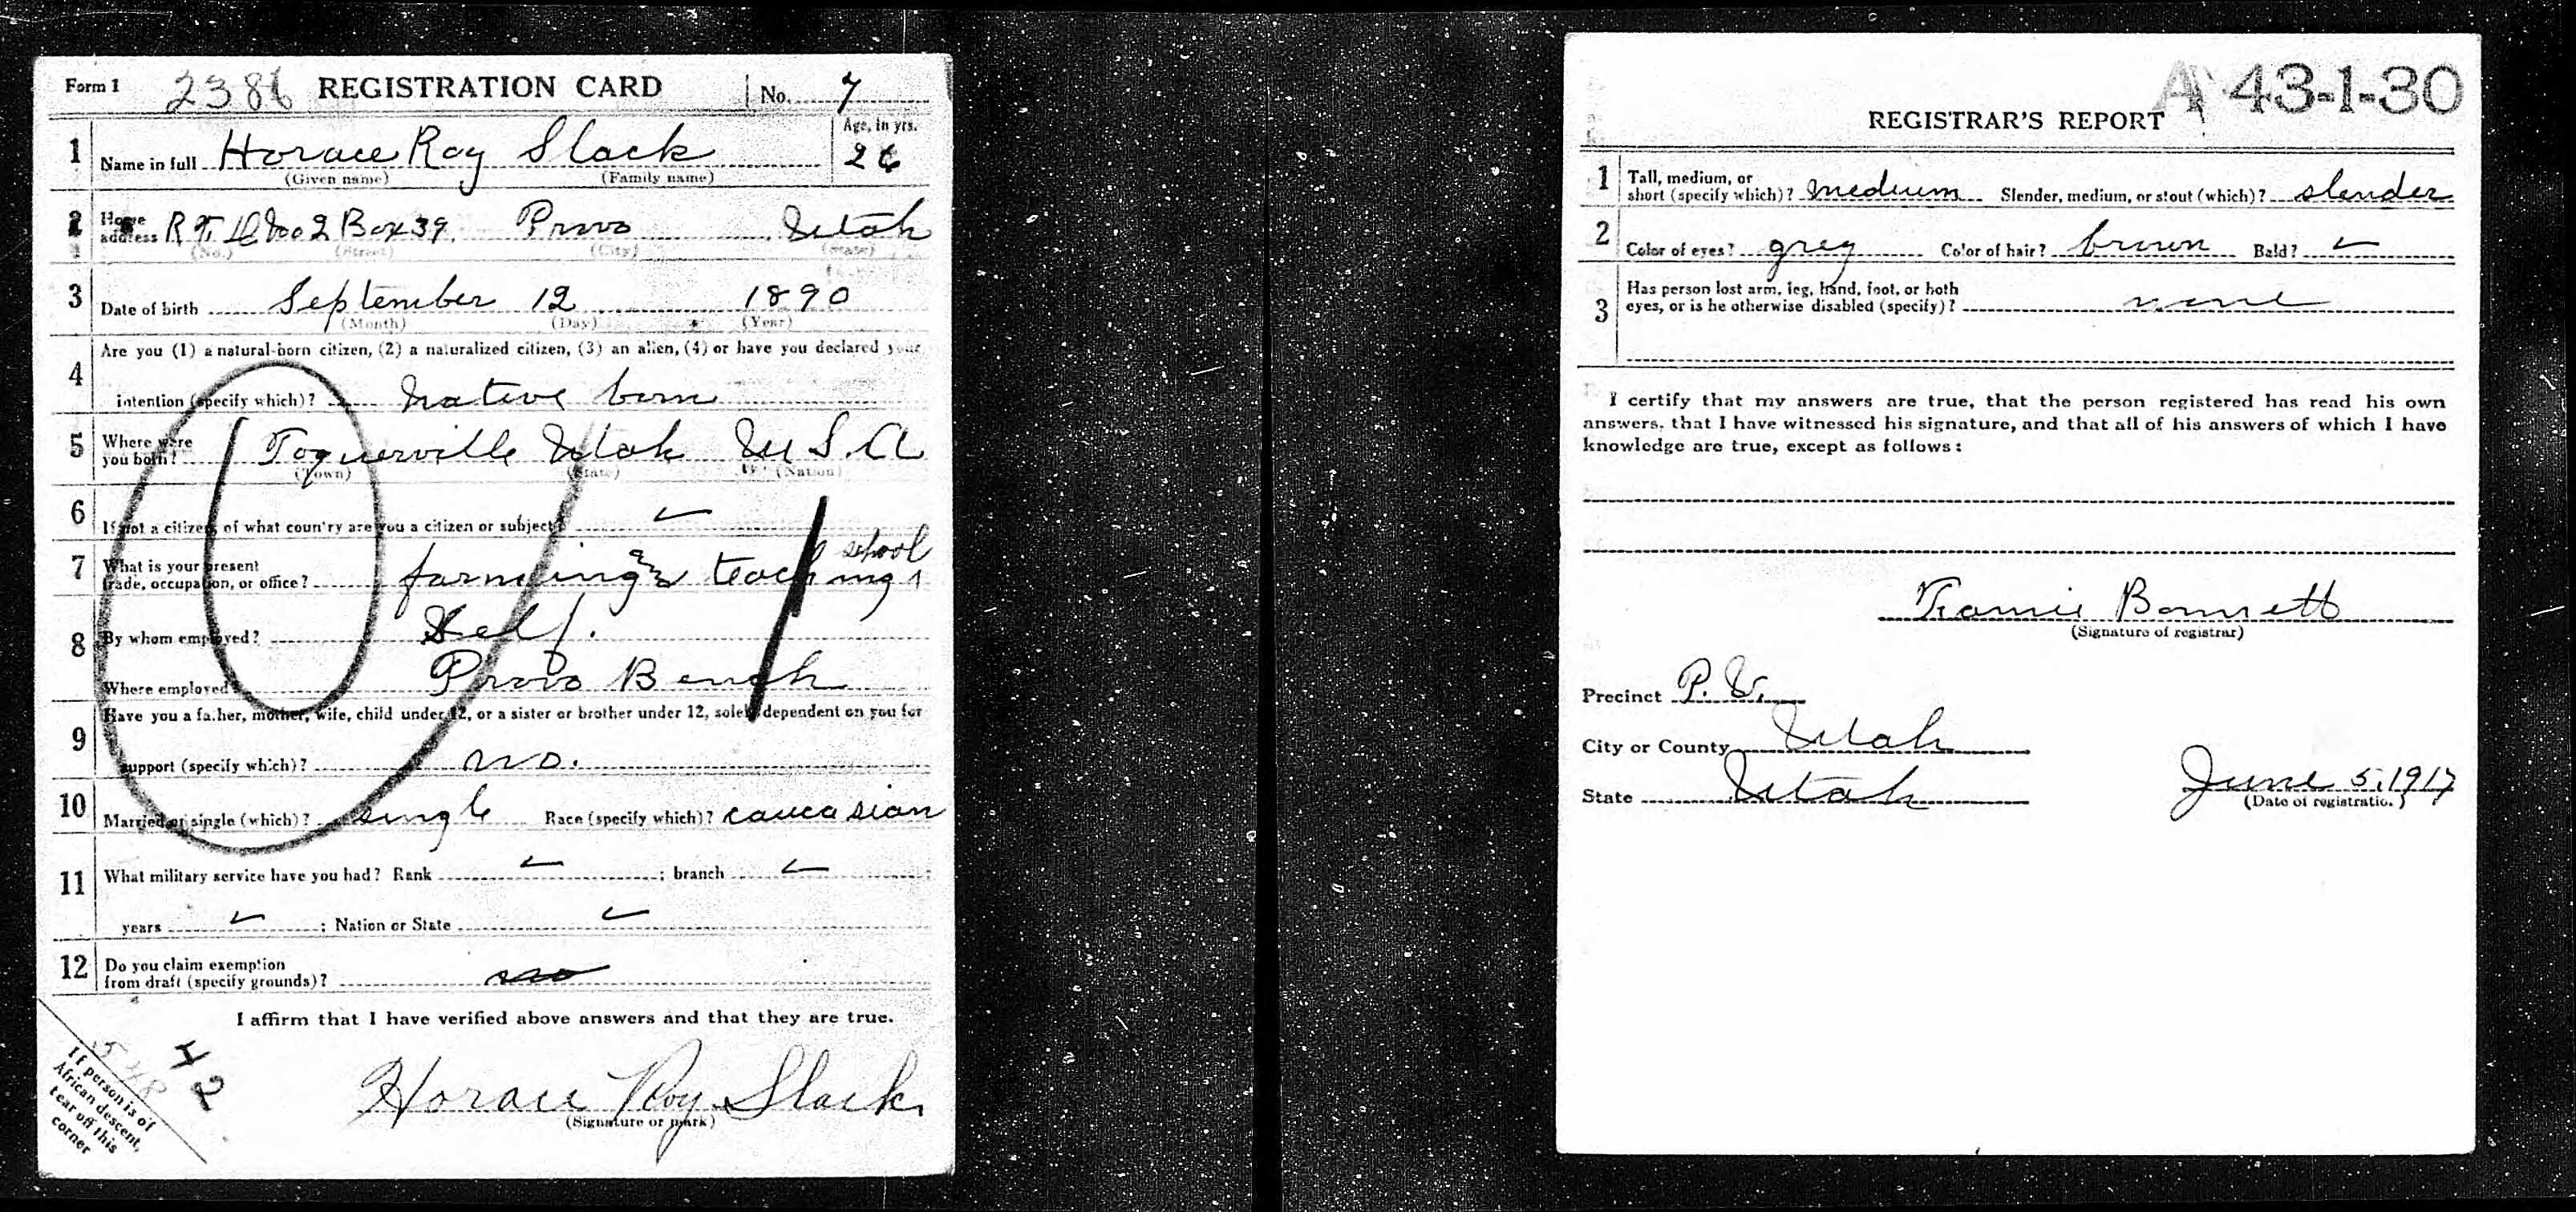 Form 1 2386 REGISTRATION CARD No. 7
1 Name in full Horace Roy Slack Age, in yrs. 26
(Given name) (Family name)
2 Home address R.F.D. No 2 Box 39. Provo Utah
(No.) (Street) (City) (State)
3 Date of birth September 12 1890
(Month) (Day) (Year)
4 Are you (1) a natural-born citizen, (2) a naturalized citizen, (3) an alien, (4) or have you declared your
intention (specify which)? Native born
5 Where were you born? Toquerville Utah U S. A
(Town) (State) (Nation)
6 If not a citizen, of what country are you a citizen or subject? ✓
school
7 What is your present trade, occupation, or office? farming & teaching
8 By whom employed? Self.
Where employed? Provo Bench
9 Have you a father, mother, wife, child under 12, or a sister or brother under 12, solely dependent on you for
support (specify which)? no.
10 Married or single (which)? single Race (specify which)? caucasian
11 What military service have you had? Rank ✓ ; branch ✓ ;
years ✓ ; Nation or State ✓
12 Do you claim exemption
from draft (specify grounds)? no
I affirm that I have verified above answers and that they are true.
42
548
If person is of
African descent,
tear off this
corner
Horace Roy Slack
(Signature or mark)
43-1-30 A
REGISTRAR'S REPORT
1 Tall, medium, or
short (specify which)? medium Slender, medium, or stout (which)? slender
2 Color of eyes? grey Color of hair? brown Bald? ✓
3 Has person lost arm, leg, hand, foot, or both
eyes, or is he otherwise disabled (specify)? none
I certify that my answers are true, that the person registered has read his own
answers, that I have witnessed his signature, and that all of his answers of which I have
knowledge are true, except as follows:
(Signature of registrar)
Precinct P. V.
City or County Utah
State Utah June 5, 1917
(Date of registration)